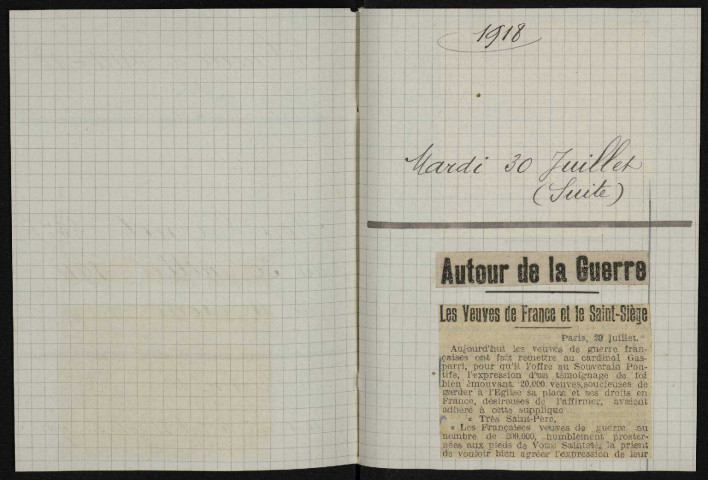 1918
Mardi 30 Juillet
(Suite)
Autour de la Guerre
Les Veuves de France et le Saint-Siège
Paris, 29 juillet.
Aujourd'hui les veuves de guerre fran-
çaises ont fait remettre au cardinal Gas-
parri, pour qu'il l'offre au Souverain Pon-
tife, l'expression d'un témoignage de foi
bien émouvant. 20,000 veuves, soucieuses de
garder à l'Eglise sa place et ses droits en
France, désireuses de l'affirmer, avaient
adhéré à cette supplique
« Très Saint-Père,
« Les Françaises veuves de guerre au
nombre de 200,000, humblement proster-
nées aux pieds de Votre Sainteté, la prient
de vouloir bien agréer l'expression de leur